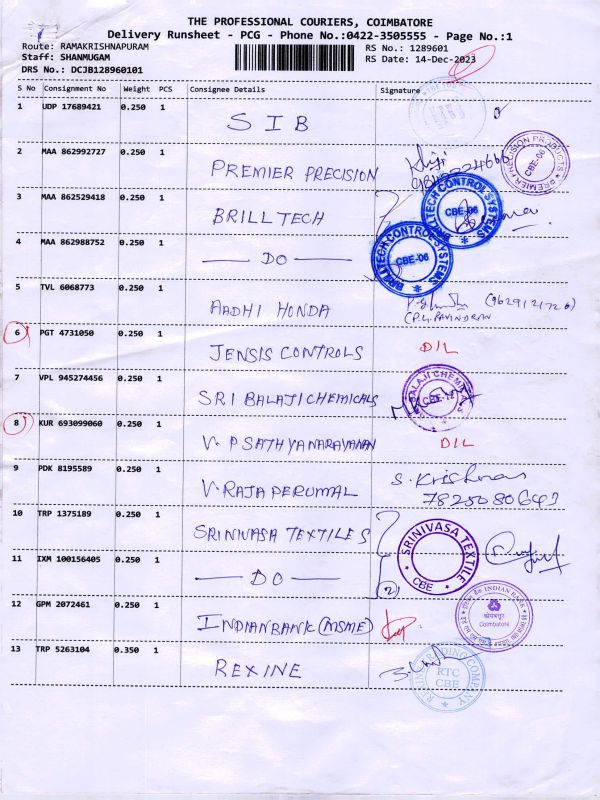 THE PROFESSIONAL COURIERS, COIMBATORE
Delivery Runsheet - PCG - Phone No.:0422-3505555 - Page No.:1
Route: RAMAKRISHNAPURAM RS No.: 1289601
Staff: SHANMUGAM RS Date: 14-Dec-2023
DRS No.: DCJB128960101
S No Consignment No Weight PCS Consignee Details Signature
1 UDP 17689421 0.250 1
SIB
2 MAA 862992727 0.250 1
PREMIER PRECISION
PREMIER PRECISION PRODUCTS CBE-06
3 MAA 862529418 0.250 1
BRILLTECH
BRILLTECH CONTROL SYSTEMS CBE-06
4 MAA 862988752 0.250 1
DO
BRILLTECH CONTROL SYSTEMS CBE-06
5 TVL 6068773 0.250 1
AADHI HONDA
6 PGT 4731050 0.250 1
JENSIS CONTROLS DIL
7 VPL 945274456 0.250 1
SRI BALAJI CHEMICALS
8 KUR 693099060 0.250 1
V. P SATHYANARAYANAN DIL
9 PDK 8195589 0.250 1 S. Krishnan
V. RAJAPERUMAL 7825080643
10 TRP 1375189 0.250 1
SRINIVASA TEXTILES
SRINIVASA TEXTILE CBE
11 IXM 100156405 0.250 1
DO (2)
12 GPM 2072461 0.250 1
INDIAN BANK (MSME)
INDIAN BANK Coimbatore
13 TRP 5263104 0.350 1
REXINE
RTC CBE